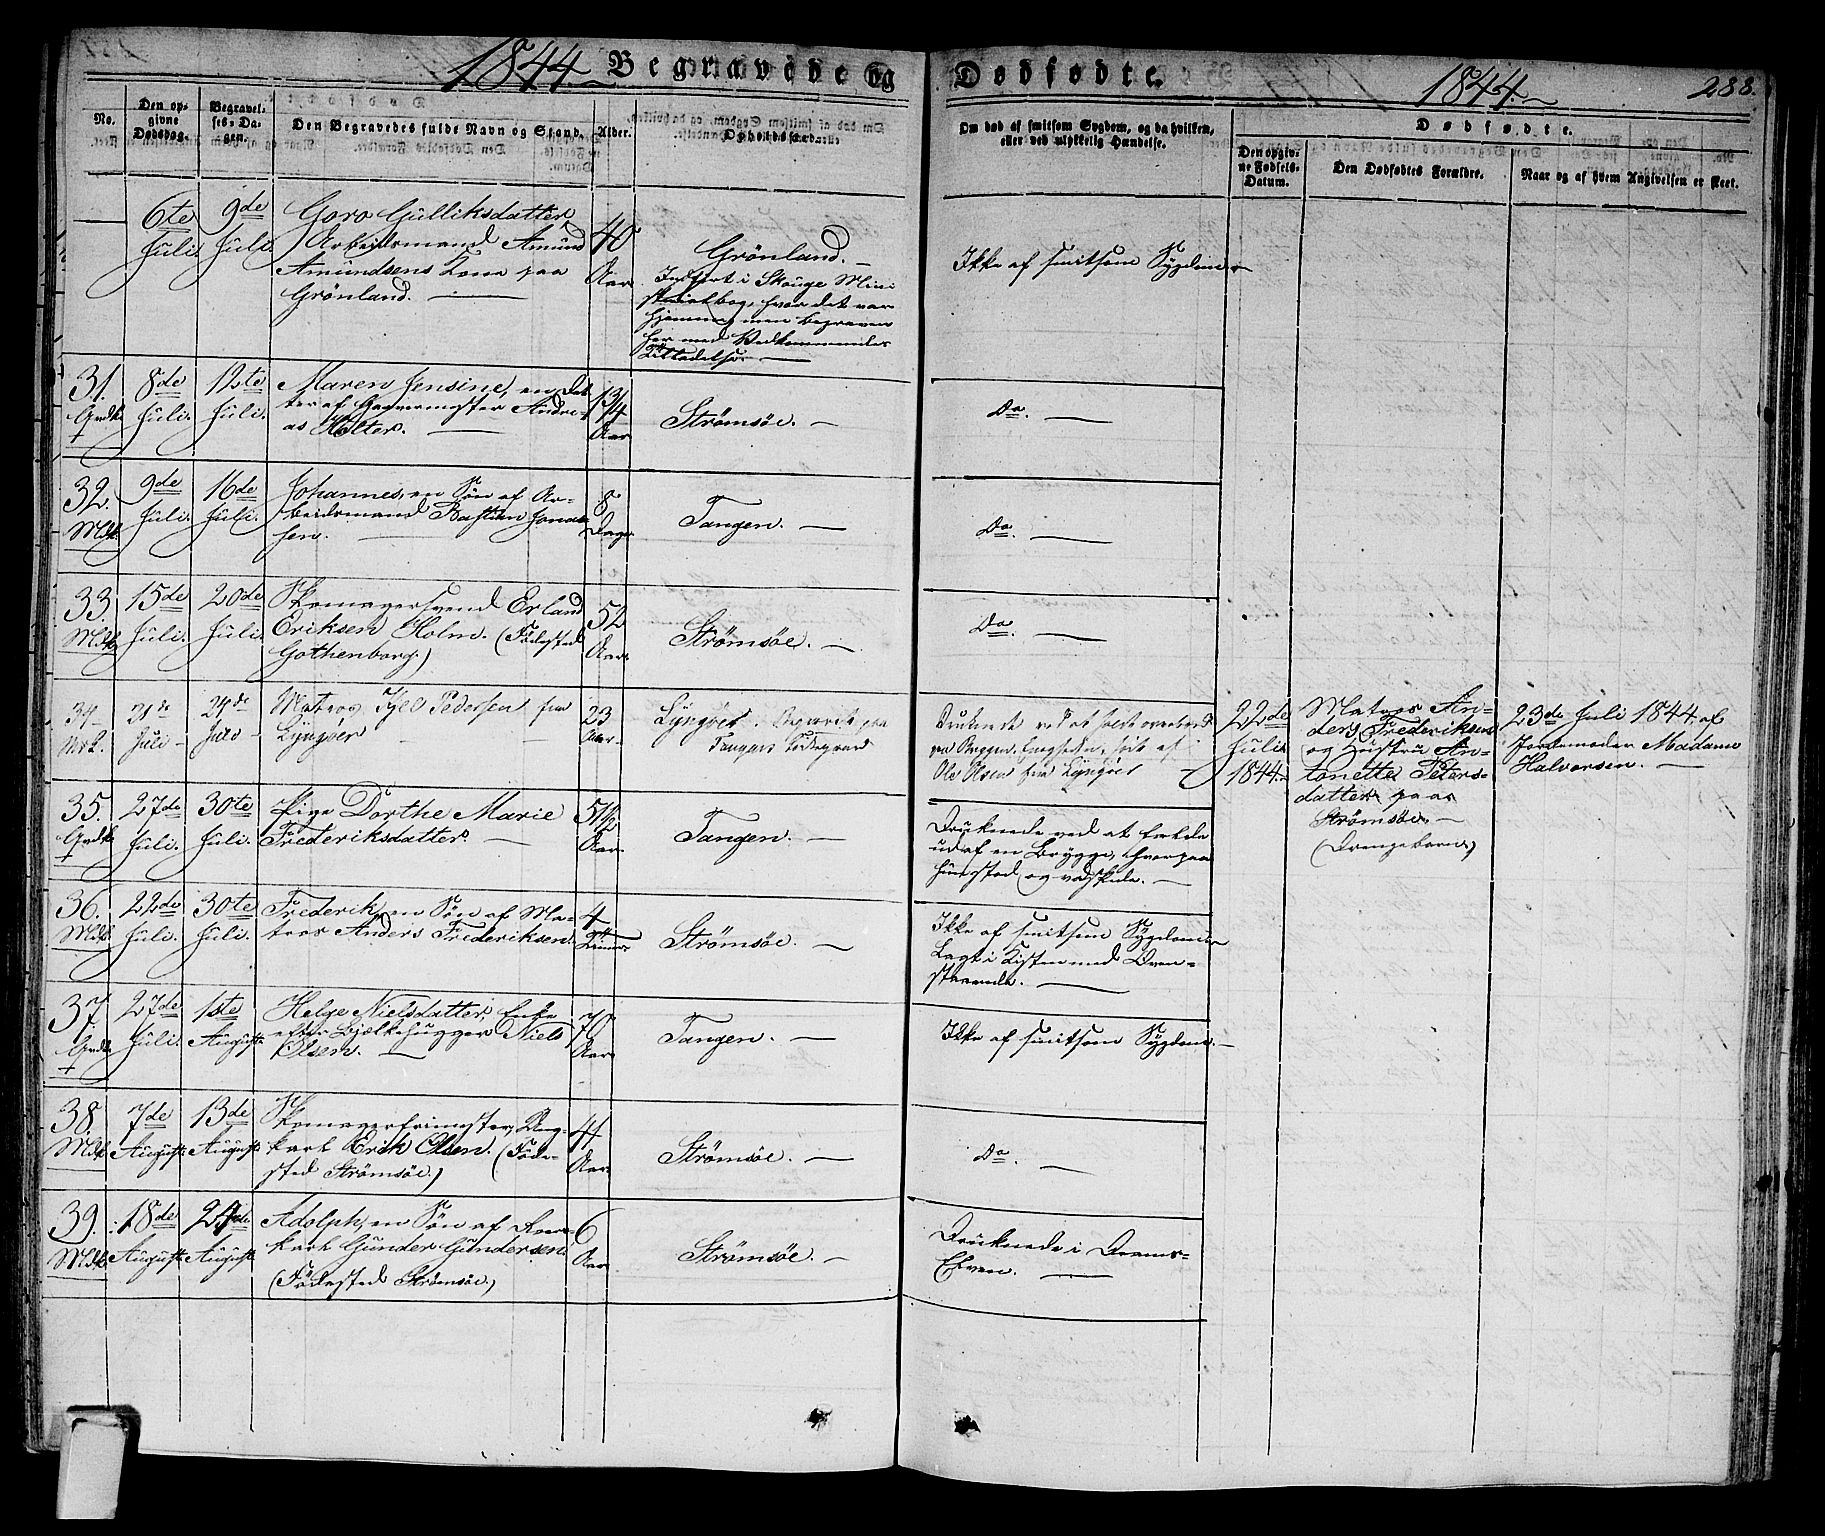 1844. Begravede og Dødfødte. 1844. 288.
No.
Den op-
givne
Dødsdag.
Begravel-
ses-Da-
gen.
Den Begravedes fulde Navn og Stand.
Alder.
Opholdssted.
Om død af smitsom Sygdom, og da hvilken,
eller ved ulykkelig Hændelse.
Dødfødte.
Den opgiv-
ne Fødsels-
Datum.
Den Dødfødtes Forældre.
Naar og af hvem Angivelsen er skeet.
6te
Juli.
9de
Juli.
Goro Gulliksdatter,
Arbeidsmand Amund
Amundsens Kone paa
Grönland.
40
Aar
Grönland.
Indført i Skouge Mini
sterialbog, hvor det var
hjemme, men begraven
her med Vedkommendes
Tilladelse.
Ikke af smitsom Sygdom.
31.
Qvdk.
8de
Juli.
12te
Juli.
Maren Jensine, en Dat
ter af Garvermester Andre-
as Holter.
1 3/4
Aar
Strømsöe.
Do.
32.
Mdk.
9de
Juli.
16de
Juli.
Johannes, en Søn af Ar-
beidsmand Bastian Jonas
sen.
8
Dage
Tangen.
Do.
33.
Mdk.
15de
Juli.
20de
Juli.
Skomagersvend Erland
Eriksen Holm. (Fødested
Gothenborg.)
52
Aar.
Strømsöe.
Do.
34
Mk.
21de
Juli
24de
Juli
Matros Kjel Pedersen fra
Lyngöer
23
Aar
Lyngöer. Begravet paa
Tangens Kirkegaard
Druknede ved at
Ole Olsen fra Lyngöer
22de
Juli
1844.
Matros An-
ders Frederiksen
og Hustru An-
tonette Peters-
datter paa
Strømsöe.
(Drengebarn)
23de Juli 1844 af
Jordemoder Madame
Halvorsen.
35.
Qvdk
27de
Juli.
30te
Juli.
Pige Dorthe Marie
Frederiksdatter.
51 1/2
Aar.
Tangen.
Druknede ved at falde
ud af en Brygge, hvorpaa
hun stod og vadskede.
36.
Mdk.
22de
Juli.
30te
Juli.
Frederik, en Søn af Ma-
tros Anders Frederiksen.
4
Timer
Strømsöe.
Ikke af smitsom Sygdom.
Lagt i Kisten med Oven-
staaende.
37.
Qvdk
27de
Juli.
1ste
August
Helge Nielsdatter, Enke
efter Bjælkehugger Niels
Olsen.
76
Aar
Tangen.
Ikke af smitsom Sygdom.
38.
Mdk
7de
August
13de
August
Skomagerfrimester, Ung-
karl Erik Olsen. (Føde-
sted Strømsöe.)
41
Aar
Strømsöe.
Do.
39.
Mdk
18de
August
24de
August
Adolph, en Søn af
karl Gunder Gundersen
(Fødested Strømsöe.)
6
Aar
Strømsöe.
Druknede i Drams-
Elven.